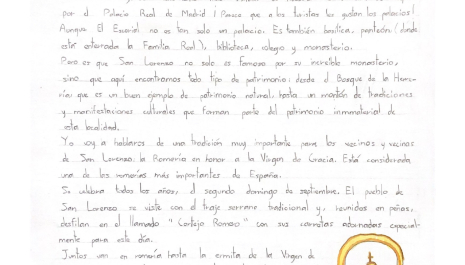 por el Palacio Real de Madrid (Parece que a los turistas les gustan los palacios)
Aunque El Escorial no es tan solo un palacio. Es también basílica, panteón (donde
está enterrada la Familia Real), biblioteca, colegio y monasterio.
Pero es que San Lorenzo no solo es famoso por su increíble monasterio,
sino que aquí encontramos todo tipo de patrimonio: desde el Bosque de la Herre-
ría, que es un buen ejemplo de patrimonio natural, hasta un montón de tradiciones
y manifestaciones culturales que forman parte del patrimonio inmaterial de
esta localidad.
Yo voy a hablaros de una tradición muy importante para los vecinos y vecinas
de San Lorenzo, la Romería en honor a la Virgen de Gracia. Está considerada
una de las romerías más importantes de España.
Se celebra todos los años, el segundo domingo de septiembre. El pueblo de
San Lorenzo se viste con el traje serrano tradicional y, reunidos en peñas,
desfilan en el llamado "Cortejo Romero" con sus carretas adornadas especial-
mente para este día.
Juntos van en romería hasta la ermita de la Virgen de